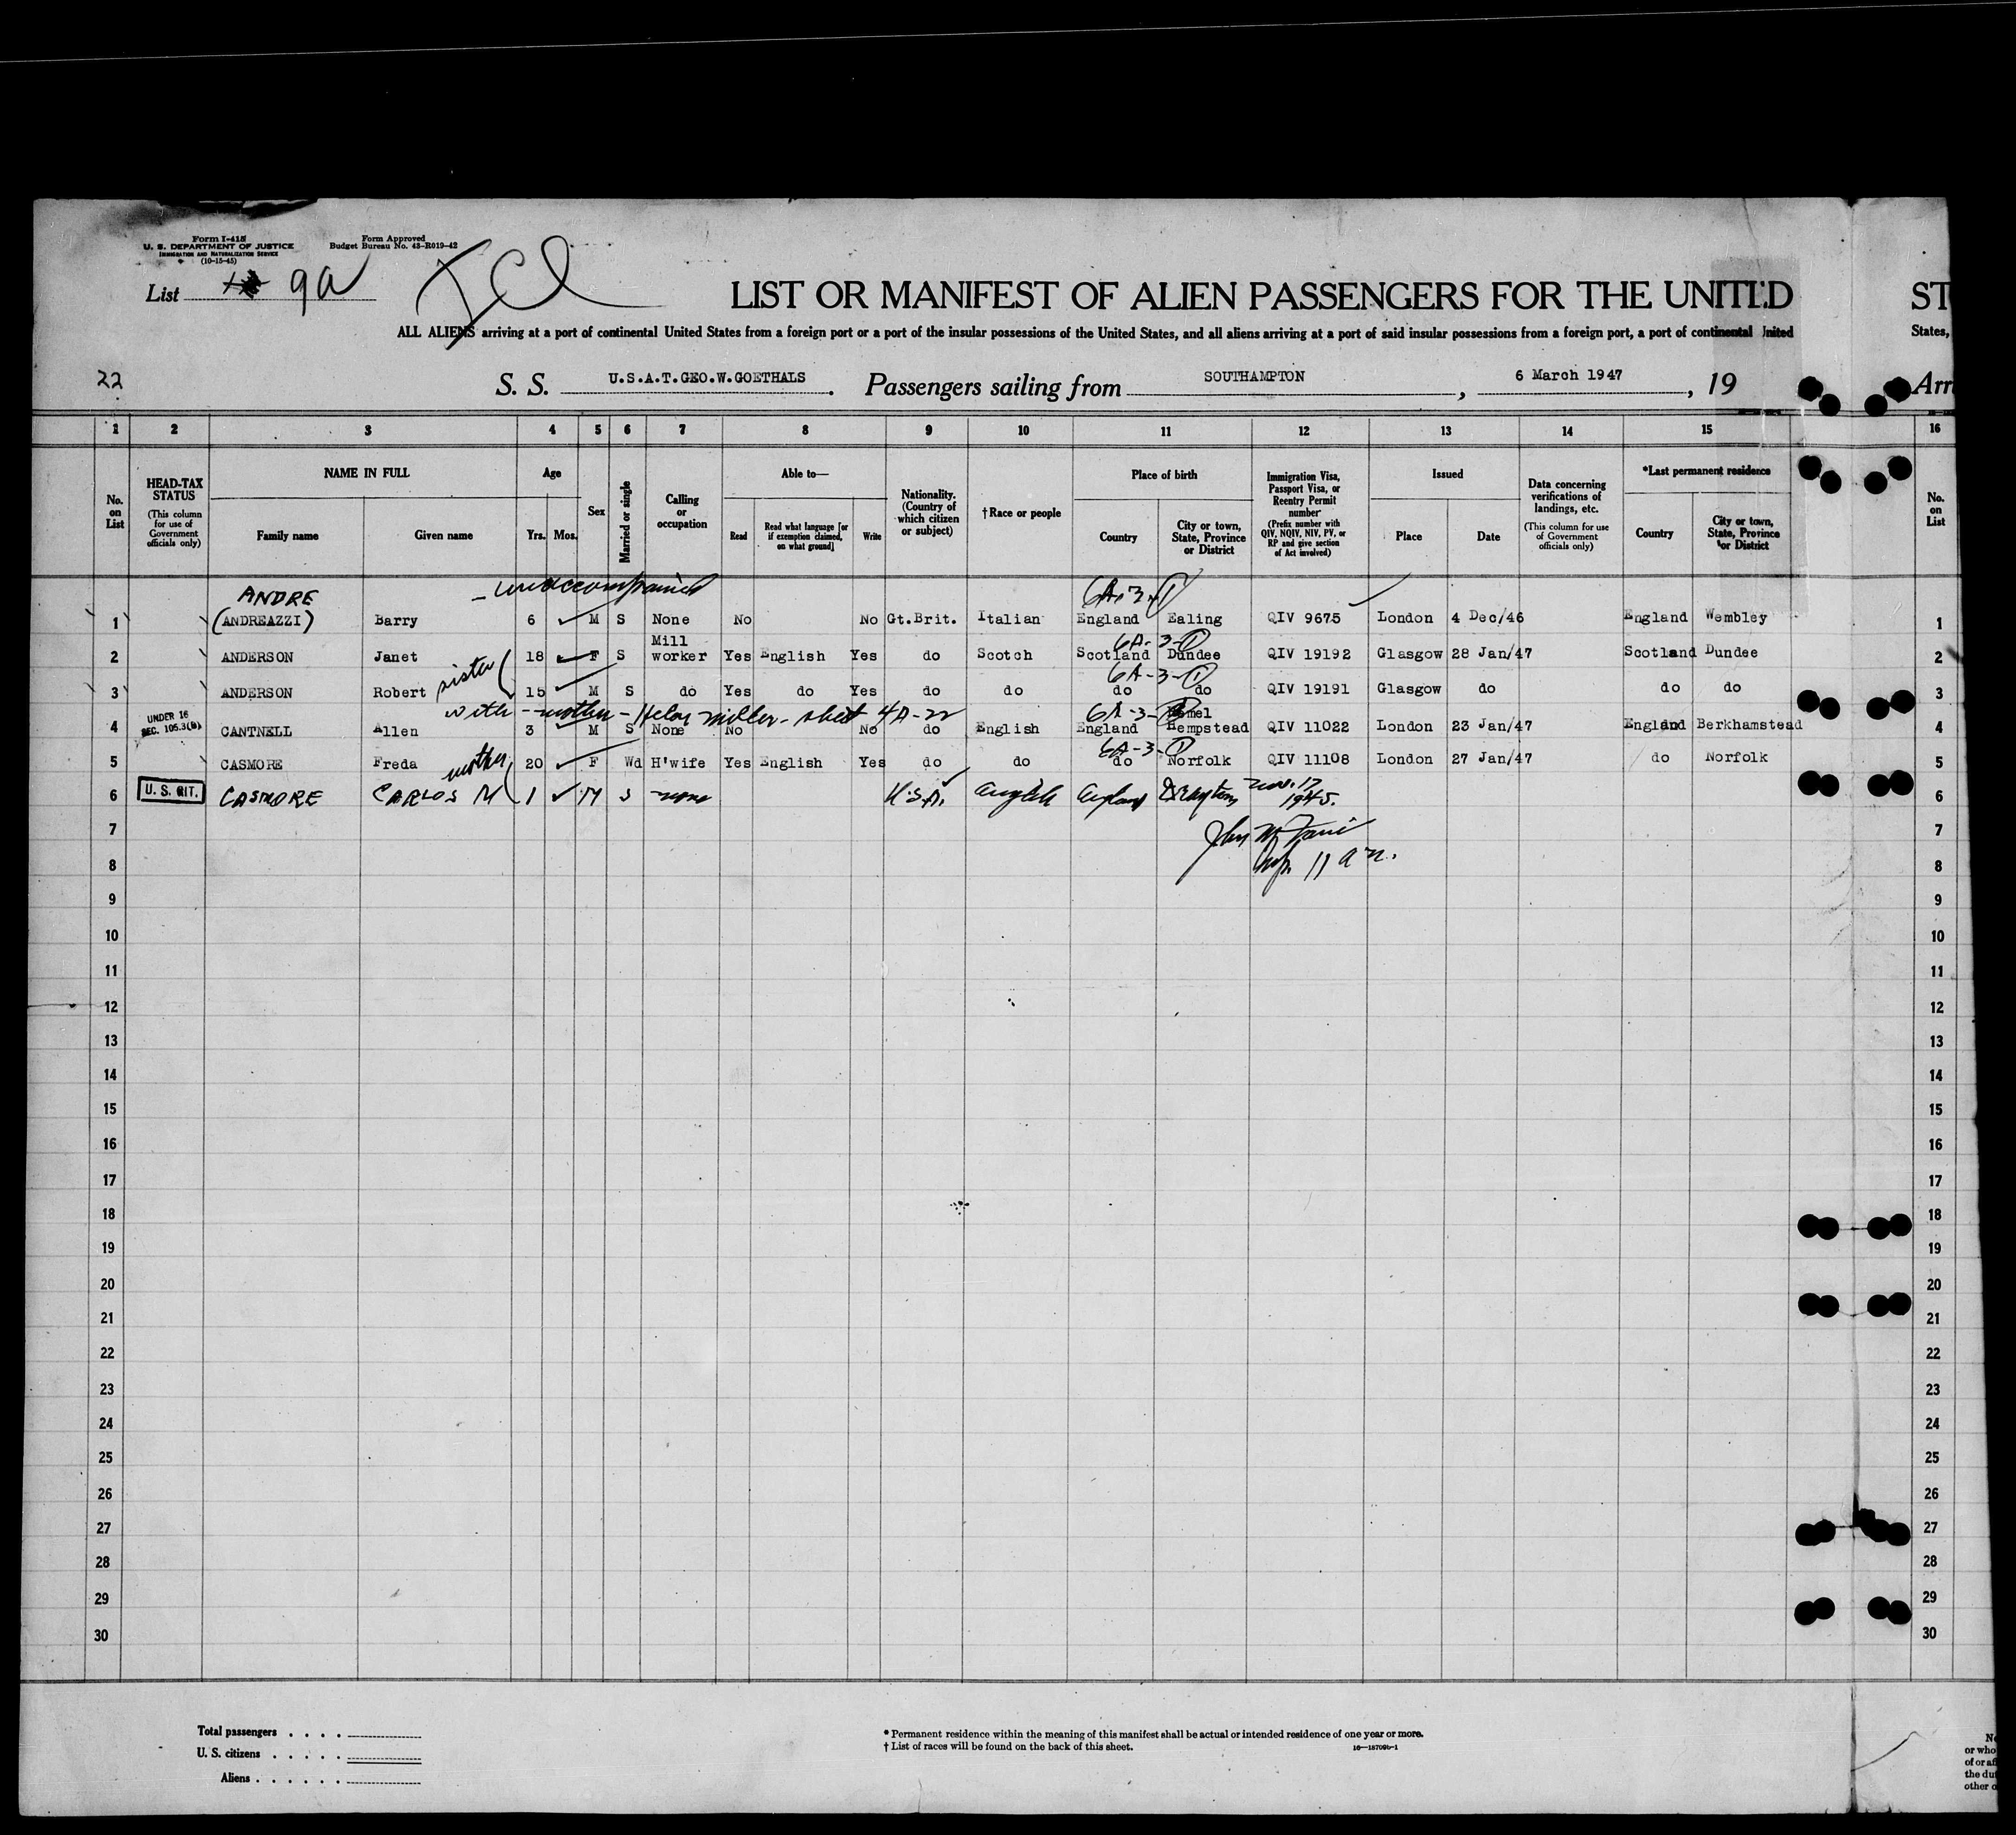 Form I-415
U. S. DEPARTMENT OF JUSTICE
IMMIGRATION AND NATURALIZATION SERVICE
(10-15-45)
Form Approved
Budget Bureau No. 43-R019-42
List 9a
LIST OR MANIFEST OF ALIEN PASSENGERS FOR THE UNITED ST
ALL ALIENS arriving at a port of continental United States from a foreign port or a port of the insular possessions of the United States, and all aliens arriving at a port of said insular possessions from a foreign port, a port of continental United States,
22
S. S. U.S.A.T.GEO.W.GOETHALS. Passengers sailing from SOUTHAMPTON, 6 March 1947, 19 Arri
1 2 3 4 5 6 7 8 9 10 11 12 13 14 15 16
No. on List
HEAD-TAX STATUS
(This column for use of Government officials only)
NAME IN FULL
Family name
Given name
Age
Yrs. Mos.
Sex
Married or single
Calling or occupation
Able to—
Read
Read what language [or if exemption claimed, on what ground]
Write
Nationality. (Country of which citizen or subject)
†Race or people
Place of birth
Country
City or town, State, Province or District
Immigration Visa, Passport Visa, or Reentry Permit number
(Prefix number with QIV, NQIV, NIV, PV, or RP and give section of Act involved)
Issued
Place
Date
Data concerning verifications of landings, etc.
(This column for use of Government officials only)
*Last permanent residence
Country
City or town, State, Province or District
No. on List
ANDRE - unaccompanied 6A-3-1
1 (ANDREAZZI) Barry 6 M S None No No Gt.Brit. Italian England Ealing QIV 9675 London 4 Dec/46 England Wembley 1
Mill 6A-3-1
2 ANDERSON Janet 18 F S worker Yes English Yes do Scotch Scotland Dundee QIV 19192 Glasgow 28 Jan/47 Scotland Dundee 2
sister 6A-3-1
3 ANDERSON Robert 15 M S do Yes do Yes do do do do QIV 19191 Glasgow do do do 3
with - mother - Helen Miller - sheet 4A-22 6A-3- Hemel
UNDER 16
SEC. 105.3(b)
4 CANTNELL Allen 3 M S None No No do English England Hempstead QIV 11022 London 23 Jan/47 England Berkhamstead 4
mother 6A-3-1
5 CASMORE Freda 20 F Wd H'wife Yes English Yes do do do Norfolk QIV 11108 London 27 Jan/47 do Norfolk 5
U. S. CIT.
6 CASMORE CARLOS M 1 M S none U.S.A. English England Nov. 17 1945. 6
John
Insp. 11 a.m.
7
8 8
9 9
10 10
11 11
12 12
13 13
14 14
15 15
16 16
17 17
18 18
19 19
20 20
21 21
22 22
23 23
24 24
25 25
26 26
27 27
28 28
29 29
30 30
Total passengers . . . .
U. S. citizens . . . . .
Aliens . . . . . .
* Permanent residence within the meaning of this manifest shall be actual or intended residence of one year or more.
† List of races will be found on the back of this sheet.
or who
of or af
the dut
other o